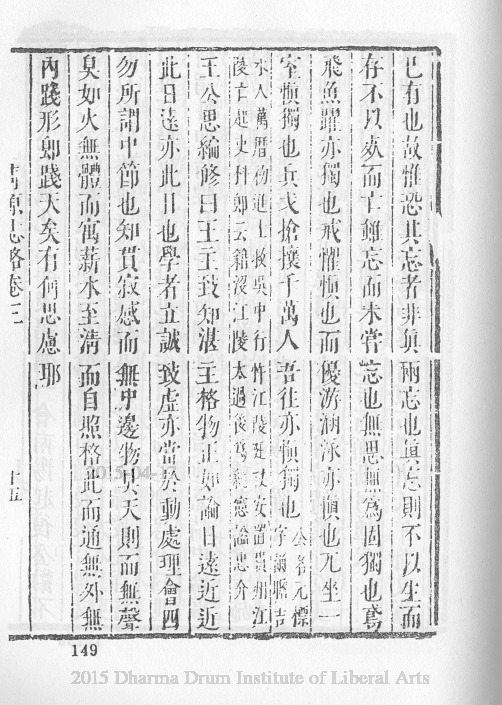 已有也故惟恐其忘者非真兩忘也真忘則不以生而
存不以死而亡雖忘而未嘗忘也無思無為固獨也鳶
飛魚躍亦獨也戒懼慎也而優游涵泳亦慎也兀坐一
室慎獨也兵戈搶攘千萬人吾往亦慎獨也公名元標字爾瞻吉
水人萬曆初進士救吳中行忤江陵廷杖安置貴州江
陵亡起史科郎云籍沒江陵太過後為總憲諡忠介
王公思綸修曰王主致知湛主格物正如論日遠近近
此日遠亦此日也學者立誠致虛亦當於動處理會四
勿所謂中節也知貫寂感而無中邊物具天則而無聲
臭如火無體而寓薪水至清而自照格此而通無外無
內踐形即踐天矣有何思慮耶
青原志略卷三 十五
149
2015 Dharma Drum Institute of Liberal Arts